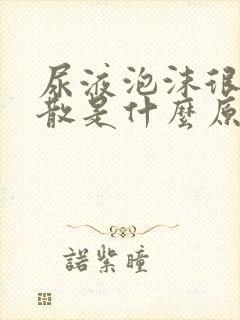 尿液泡沫很
散是什麼原
諾紫瞳